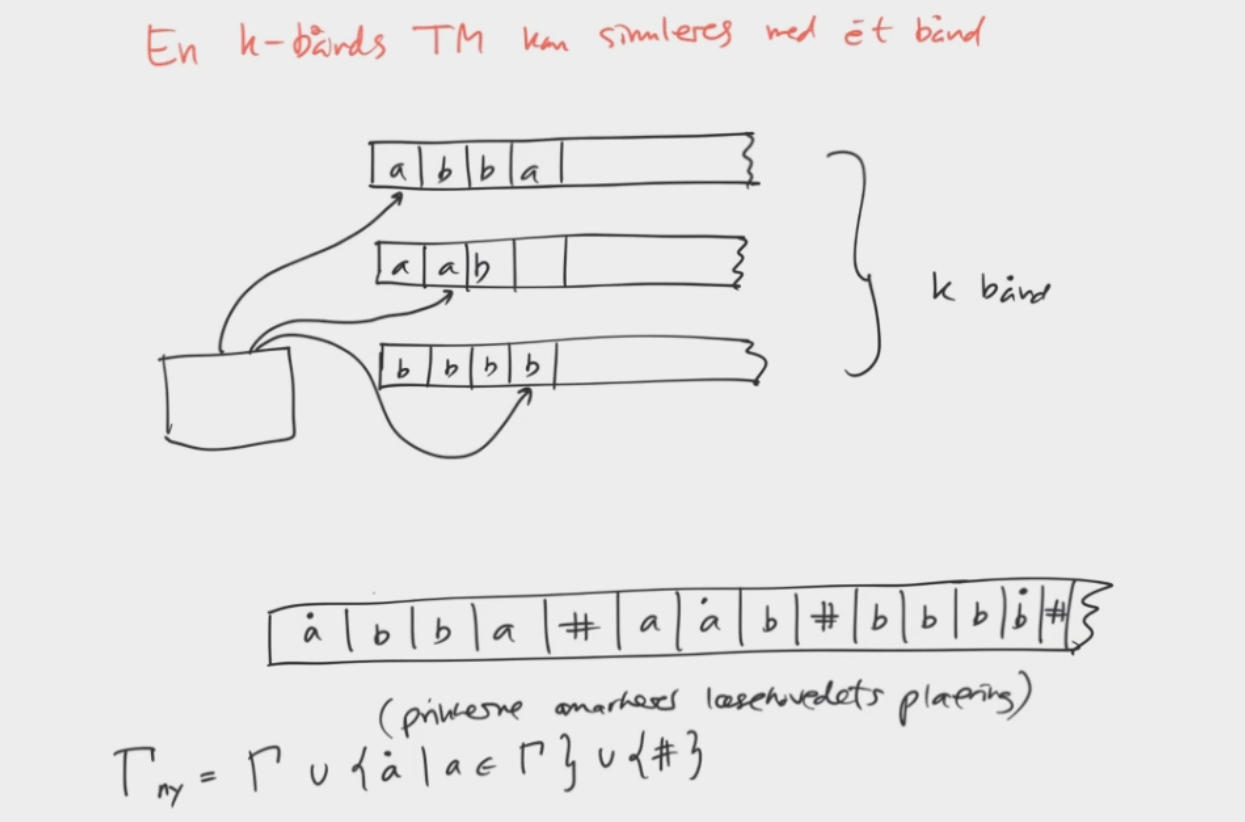 En k-bånds TM kan simuleres med ét bånd
a b b a
a a b
k bånd
b b b b
ȧ b b a # a ȧ b # b b b ḃ #
(prikkerne læsehovedets placering)
Γny = Γ ∪ {ȧ | a ∈ Γ} ∪ {#}